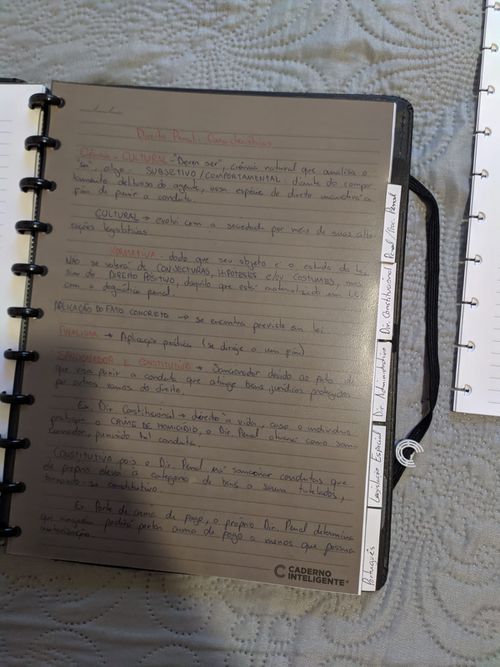 Direito Penal: Características
Ciência - CULTURAL "Dever ser", ciência natural que analisa o
"ser", atinge SUBJETIVO/COMPORTAMENTAL: diante do compor
tamento delituoso do agente, usa espécie de direito
fim de punir a conduta.
CULTURAL → evolui com a sociedade por meio de suas alte
rações legislativas
NORMATIVA: dado que seu objeto é o estudo da lei
NÃO se valerá de CONJECTURAS, HIPÓTESES E/OU COSTUMES, mas
sim do DIREITO POSITIVO, daquilo que está materializado em LEI
com a dogmática penal.
APLICAÇÃO DO FATO CONCRETO → se encontra previsto em lei
FINALISTA → Aplicação prática (se dirige a um fim)
SANCIONADOR E CONSTITUTIVO → Sancionador devido ao fato de
que visa punir a conduta que atinge bens jurídicos protegidos
por outros ramos do direito.
Ex: Dir. Constitucional → direito à vida, caso o indivíduo
pratique o CRIME DE HOMICÍDIO, o Dir. Penal atuará como san-
cionador, punindo tal conduta.
CONSTITUTIVO pois o Dir. Penal irá sancionar condutas que
ele próprio eleva à categoria de bens a serem tutelados,
tornando-se constitutivo
Ex: Porte de arma de fogo, o próprio Dir. Penal determina
que ninguém poderá portar arma de fogo a menos que possua
autorização.
CADERNO
INTELIGENTE®
Penal / Proc. Penal
Dir. Constitucional
Dir. Administrativo
Legislação Especial
Português